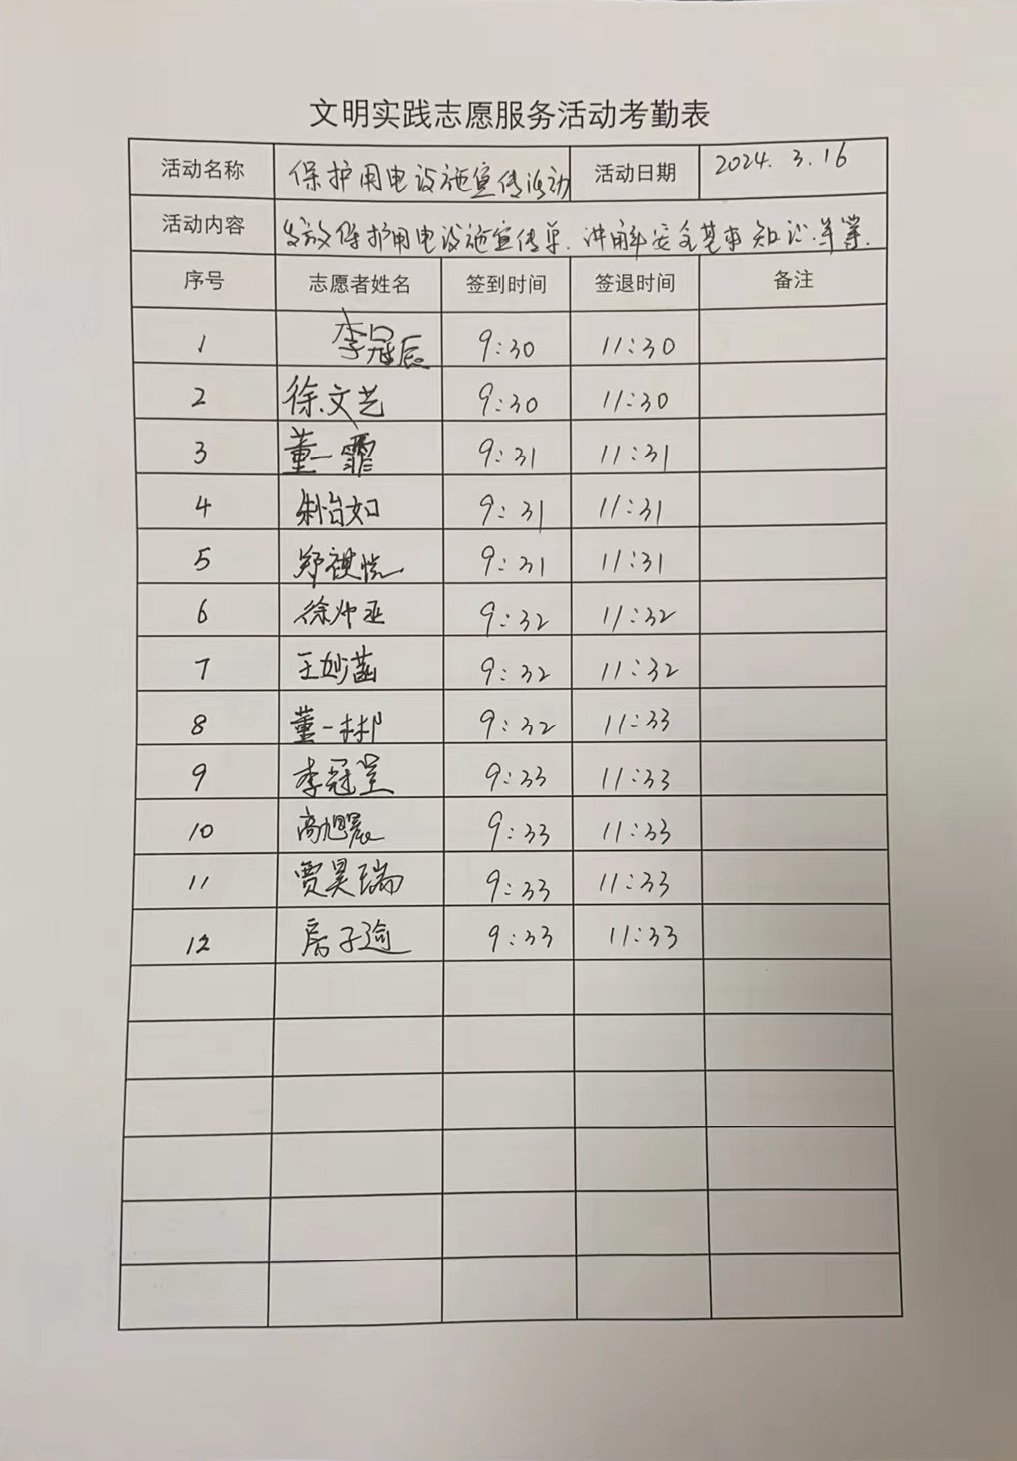 文明实践志愿服务活动考勤表
活动名称 保护用电设施宣传活动 活动日期 2024.3.16
活动内容 发放保护用电设施宣传单.讲解安全基本知识.等等.
序号 志愿者姓名 签到时间 签退时间 备注
1 李冠辰 9:30 11:30
2 徐文艺 9:30 11:30
3 董一霏 9:31 11:31
4 朱怡如 9:31 11:31
5 郑祺悦 9:31 11:31
6 徐帅亚 9:32 11:32
7 王妙菡 9:32 11:32
8 董一彬 9:32 11:33
9 李冠莹 9:33 11:33
10 高旭晨 9:33 11:33
11 贾昊瑞 9:33 11:33
12 房子逾 9:33 11:33